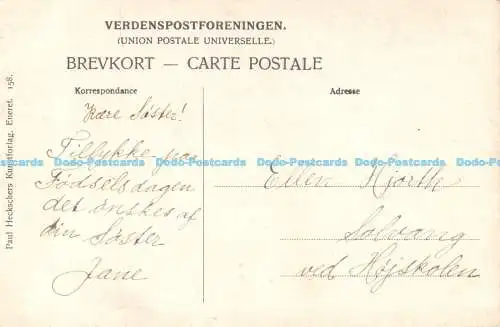 VERDENSPOSTFORENINGEN.
(UNION POSTALE UNIVERSELLE.)
BREVKORT — CARTE POSTALE
Korrespondance
Kære Søster!
Tillykke paa
Fødselsdagen
det ønskes af
din Søster
Jane
Adresse
Ellen Hjorth
Solvang
ved Højskolen
Paul Heckschers Kunstforlag. Eneret. 158.
Dodo-Postcards Dodo-Postcards Dodo-Postcards Dodo-Postcards Dodo-Postcards Dodo-Postcards